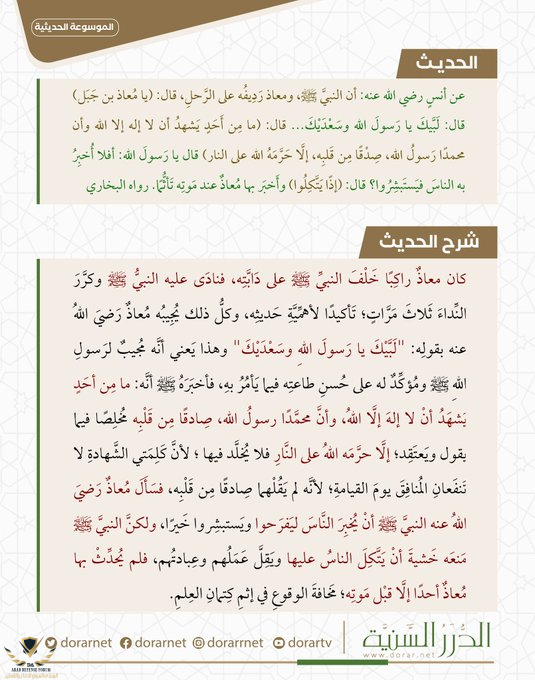 الموسوعة الحديثية
الحديث
عن أنسٍ رضي الله عنه: أن النبيَّ ﷺ، ومعاذ رَدِيفُه على الرَّحلِ، قال: (يا مُعاذ بن جَبَل)
قال: لَبَّيكَ يا رَسولَ الله وسَعْدَيْكَ... قال: (ما مِن أَحَدٍ يَشهدُ أن لا إله إلا الله وأن
محمدًا رَسولُ الله، صِدْقًا مِن قلبِه، إلَّا حَرَّمَهُ الله على النار) قال يا رَسولَ الله: أفلا أُخبِرُ
به الناسَ فيَستَبشِرُوا؟ قال: (إذًا يَتَّكِلُوا) وأخبَر بها مُعاذٌ عند مَوتِه تَأثُّمًا. رواه البخاري
شرح الحديث
كان معاذٌ راكِبًا خَلْفَ النبيِّ ﷺ على دَابَّتِه، فنادَى عليه النبيُّ ﷺ وكرَّرَ
النِّداءَ ثَلاثَ مَرَّاتٍ؛ تَأكيدًا لأهمِّيَّةِ حَديثِه، وكلُّ ذلك يُجِيبُه مُعاذٌ رَضيَ اللهُ
عنه بقولِه: "لَبَّيْكَ يا رَسولَ اللهِ وسَعْدَيْكَ" وهذا يَعني أنَّه مُجيبٌ لرَسولِ
اللهِ ﷺ ومُؤكِّدٌ له على حُسنِ طاعتِه فيما يَأمُرُ بهِ، فأخبَرَهُ ﷺ أنَّه: ما مِن أحَدٍ
يَشهَدُ أنْ لا إلهَ إلَّا اللهُ، وأنَّ محمَّدًا رسولُ الله، صادقًا مِن قَلْبِه مُخلِصًا فيما
يقول ويَعتَقِد؛ إلَّا حرَّمَه اللهُ على النَّارِ فلا يُخلَّد فيها ؛ لأنَّ كَلِمَتي الشَّهادةِ لا
تَنفَعانِ المُنافِقَ يومَ القيامةِ؛ لأنَّه لم يَقُلْهما صادقًا مِن قَلْبِه، فسَأَل مُعاذٌ رَضيَ
اللهُ عنه النبيَّ ﷺ أنْ يُخبِرَ النَّاسَ ليَفرَحوا ويَستبشِروا خَيرًا، ولكنَّ النبيَّ ﷺ
مَنعَه خَشيةَ أنْ يَتَّكِلَ الناسُ عليها ويَقِلَّ عَمَلُهم وعِبادتُهم، فلم يُحدِّثْ بها
مُعاذٌ أحدًا إلَّا قبْل مَوتِه؛ مَخافةَ الوقوعِ في إثمِ كِتمانِ العِلمِ.
الدُّرَرُ السَّنِيَّة
www.dorar.net
dorarnet dorarnet dorarrnet dorartv
ARAB DEFENSE FORUM